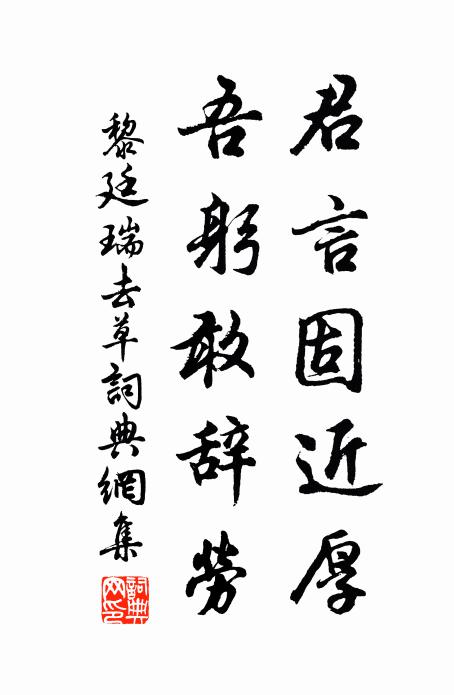 君言固近厚
吾躬敢辞劳
黎廷瑞去草詞典網集
詞典網印